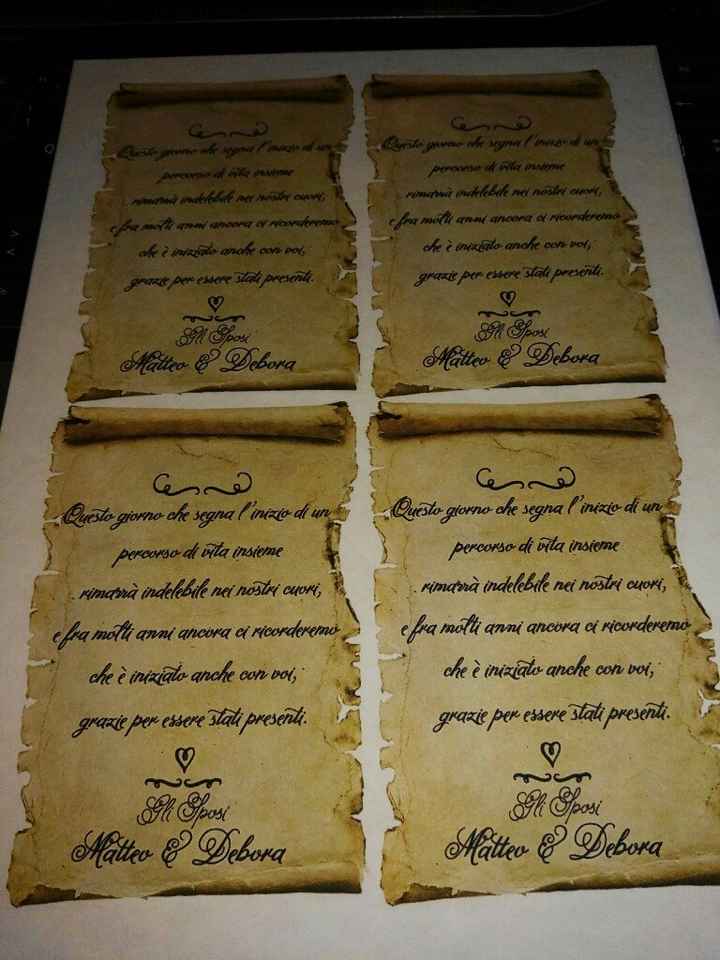 Questo giorno che segna l'inizio di un
percorso di vita insieme
rimarrà indelebile nei nostri cuori,
e fra molti anni ancora ci ricorderemo
che è iniziato anche con voi;
grazie per essere stati presenti.
Gli Sposi
Matteo & Debora
Questo giorno che segna l'inizio di un
percorso di vita insieme
rimarrà indelebile nei nostri cuori,
e fra molti anni ancora ci ricorderemo
che è iniziato anche con voi;
grazie per essere stati presenti.
Gli Sposi
Matteo & Debora
Questo giorno che segna l'inizio di un
percorso di vita insieme
. rimarrà indelebile nei nostri cuori,
e fra molti anni ancora ci ricorderemo
che è iniziato anche con voi;
grazie per essere stati presenti.
Gli Sposi
Matteo & Debora
Questo giorno che segna l'inizio di un
percorso di vita insieme
. rimarrà indelebile nei nostri cuori,
e fra molti anni ancora ci ricorderemo
che è iniziato anche con voi;
grazie per essere stati presenti.
Gli Sposi
Matteo & Debora